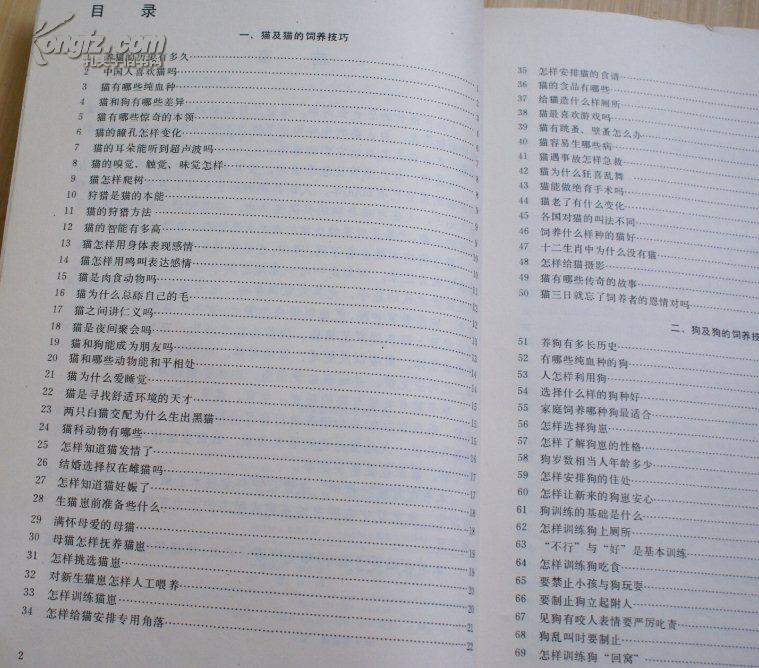 目 录
一、猫及猫的饲养技巧
Kongfz.com
孔夫子旧书网
养猫的历史有多久
2 中国人喜欢猫吗 1
3 猫有哪些纯血种 1
4 猫和狗有哪些差异 2
5 猫有哪些惊奇的本领 4
6 猫的瞳孔怎样变化 5
7 猫的耳朵能听到超卢波吗 6
8 猫的嗅觉、触觉、味觉怎样 7
9 猫怎样爬树 8
10 狩猎是猫的本能 8
11 猫的狩猎方法 9
12 猫的智能有多高 9
13 猫怎样用身体表现感情
14 猫怎样用鸣叫表达感情
15 猫是肉食动物吗
16 猫为什么总舔自己的毛
17 猫之间讲仁义吗
18 猫是夜间聚会吗
19 猫和狗能成为朋友吗
20 猫和哪些动物能和平相处
21 猫为什么爱睡觉 14
22 猫是寻找舒适环境的天才 14
23 两只白猫交配为什么生出黑猫 15
24 猫科动物有哪些 15
25 怎样知道猫发情了 16
26 结婚选择权在雌猫吗 17
27 怎样知道猫妊娠了 17
28 生猫崽前准备些什么 18
29 满怀母爱的母猫 18
30 母猫怎样抚养猫崽 19
31 怎样挑选猫崽 19
32 对新生猫崽怎样人工喂养 20
33 怎样训练猫崽 20
34 怎样给猫安排专用角落 22
2
35 怎样安排猫的食谱
36 猫的食品有哪些
37 给猫造什么样厕所
38 猫最喜欢游戏吗
39 猫有跳蚤、壁蚤怎么办
40 猫容易生哪些病
41 猫遇事故怎样急救
42 猫为什么狂喜乱舞
43 猫能做绝育手术吗
44 猫老了有什么变化
45 各国对猫的叫法不同
46 饲养什么样种的猫好
47 十二生肖中为什么没有猫
48 怎样给猫摄影
49 猫有哪些传奇的故事
50 猫三日就忘了饲养者的恩情对吗
二、狗及狗的饲养技
51 养狗有多长历史
52 有哪些纯血种的狗
53 人怎样利用狗
54 选择什么样的狗种好
55 家庭饲养哪种狗最适合
56 怎样选择狗崽
57 怎样了解狗崽的性格
58 狗岁数相当人年龄多少
59 怎样安排狗的住处
60 怎样让新来的狗崽安心
61 狗训练的基础是什么
62 怎样训练狗上厕所
63 “不行”与“好”是基本训练
64 怎样训练狗吃食
65 要禁止小孩与狗玩耍
66 要制止狗立起跗人
67 见狗有咬人表情要严厉叱责
68 狗乱叫时要制止
69 怎样训练狗“回窝”